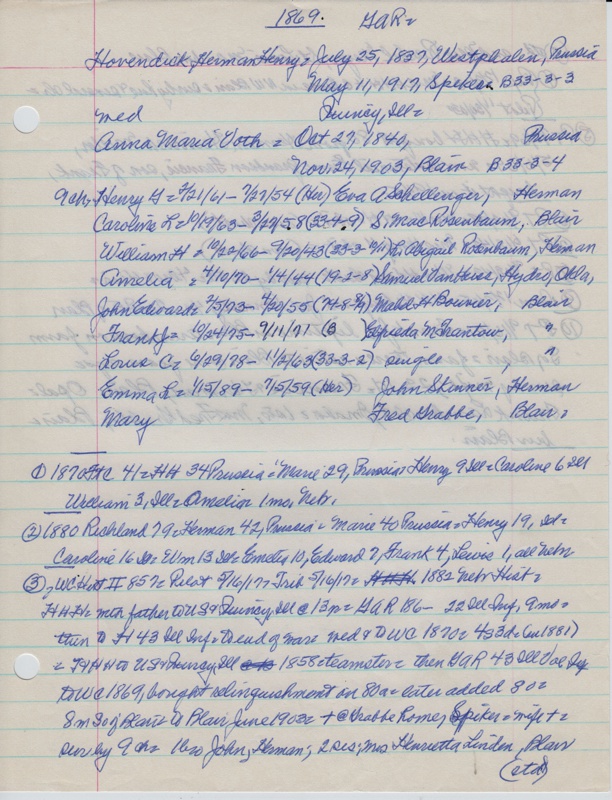 1869. GAR=
Hovendick, Herman Henry = July 25, 1837, Westphalen, Prussia
May 11, 1917, Spiker B33-3-3
wed Quincy, Ill =
Anna Maria Voth = Oct 27, 1840, Prussia
Nov. 24, 1903, Blair B33-3-4
9 ch, Henry G = 2/21/61 - 7/27/54 (Her) Eva A Shellenger, Herman
Caroline L = 10/19/63 - 3/29/58 (33-4-9) S. Mac Rosenbaum, Blair
William H = 10/20/66 - 9/20/43 (33-3- L. Abigail Rosenbaum, Herman
Amelia = 4/10/70 - 1/4/44 (19-2-8) Samuel Van Hries, Hydro, Okla,
John Edward = 2/5/73 - 4/20/55 (74-8- Mabel H Bouvier, Blair
Frank J = 10/24/75 - 9/11/71 (B) Zepieda M Frantow, "
Louis C = 6/29/78 - 11/2/63 (33-3-2) single "
Emma L = 1/15/89 - 7/5/59 (Her) John Skinner, Herman
Mary Fred Grabbe, Blair =
① 1870 FtC 41 = HH 34 Prussia = Marie 29, Prussia = Henry 9 Ill = Caroline 6 Ill
William 3, Ill = Amelia 1 mo, Nebr.
② 1880 Richland 79 = Herman 42, Prussia = Marie 40 Prussia = Henry 19, Ill =
Caroline 16 Ill = Wm 13 Ill = Emelia 10, Edward 7, Frank 4, Lewis 1, all Nebr
③ = WC Hist II 857 = Pilot 5/16/17 = Trib 5/16/17 = 1882 Nebr Hist =
HHH = mth father to US & Quincy, Ill @ 13 m = GAR 186- 22 Ill Inf, 9 mo =
then to H 43 Ill Inf = to end of war = wed & to WC 1870 = 4s3ds (in 1881)
= HHH to US & Quincy, Ill 1858 = teamster = then GAR 43 Ill Vol Inf
to WC 1869, bought relinquishment on 80a = later added 80 =
8m SO of Blair = to Blair June 1903 = + @ Grabbe Home, Spiker = wife + =
sur by 9 ch = 1 bro John, Herman; 2 sis; Mrs Henrietta Linden, Blair
(etd)